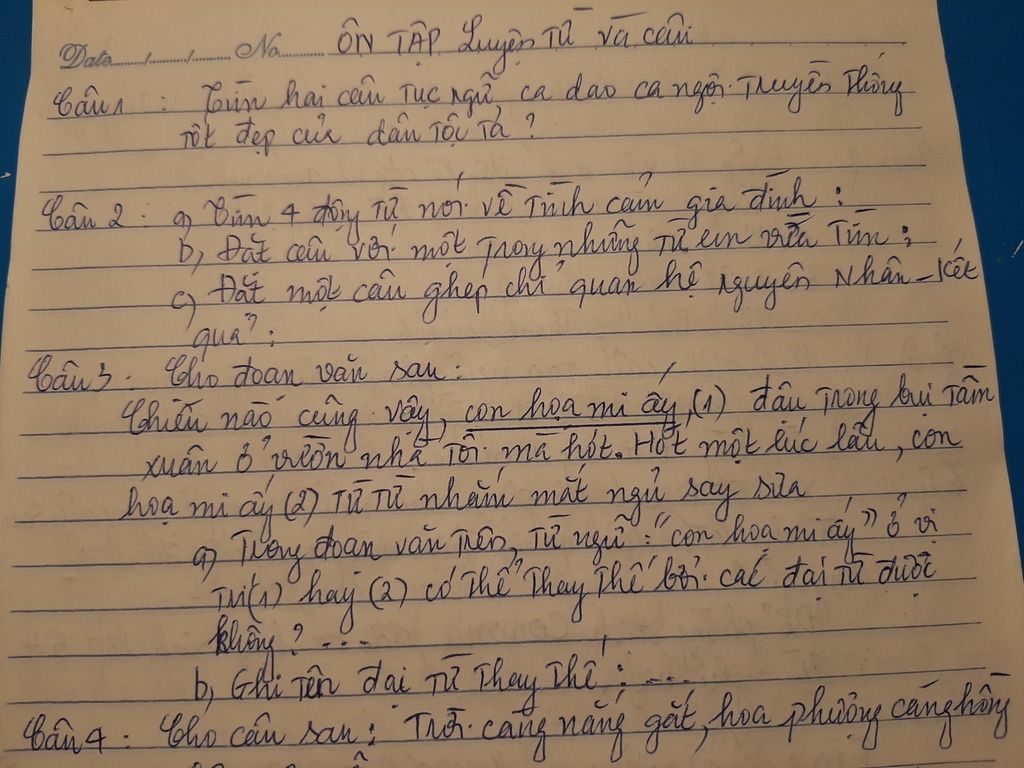 Date...../...../..... No......... ÔN TẬP Luyện Từ và câu
Câu 1 : Tìm hai câu Tục ngữ, ca dao ca ngợi Truyền Thống
Tốt đẹp của dân Tộc Ta ?
Câu 2 : a, Tìm 4 động Từ nói về Tình cảm gia đình :
b, Đặt câu với một Trong những Từ em vừa Tìm :
c, Đặt một câu ghép chỉ quan hệ nguyên Nhân - Kết
quả :
Câu 3 : Cho đoạn văn sau :
Chiều nào cũng vậy, con hoạ mi ấy, (1) đậu Trong bụi Tầm
xuân ở vườn nhà Tôi mà hót. Hót một lúc lâu, con
hoạ mi ấy (2) Từ Từ nhắm mắt ngủ say sưa
a, Trong đoạn văn Trên, Từ ngữ : "con hoạ mi ấy" ở vị
Trí (1) hay (2) có Thể Thay Thế bởi các đại Từ được
không ? ....
b, Ghi Tên đại Từ Thay Thế : ....
Câu 4 : Cho câu sau : Trời càng nắng gắt, hoa phượng càng hồng